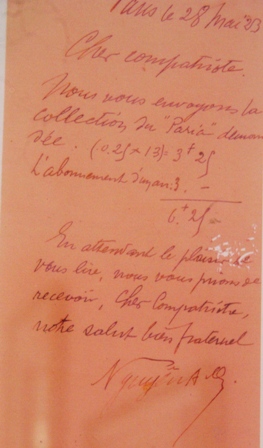 Paris le 28 Mai 23
Cher compatriote.
Nous vous envoyons la
collection du "Paria" deman
dée. (0.25 x 13) = 3f 25
L'abonnement d'un an: 3. -
6.f 25 -
En attendant le plaisir de
vous lire, nous vous prions de
recevoir, Cher Compatriote,
notre salut bien fraternel
Nguyên A. Q.